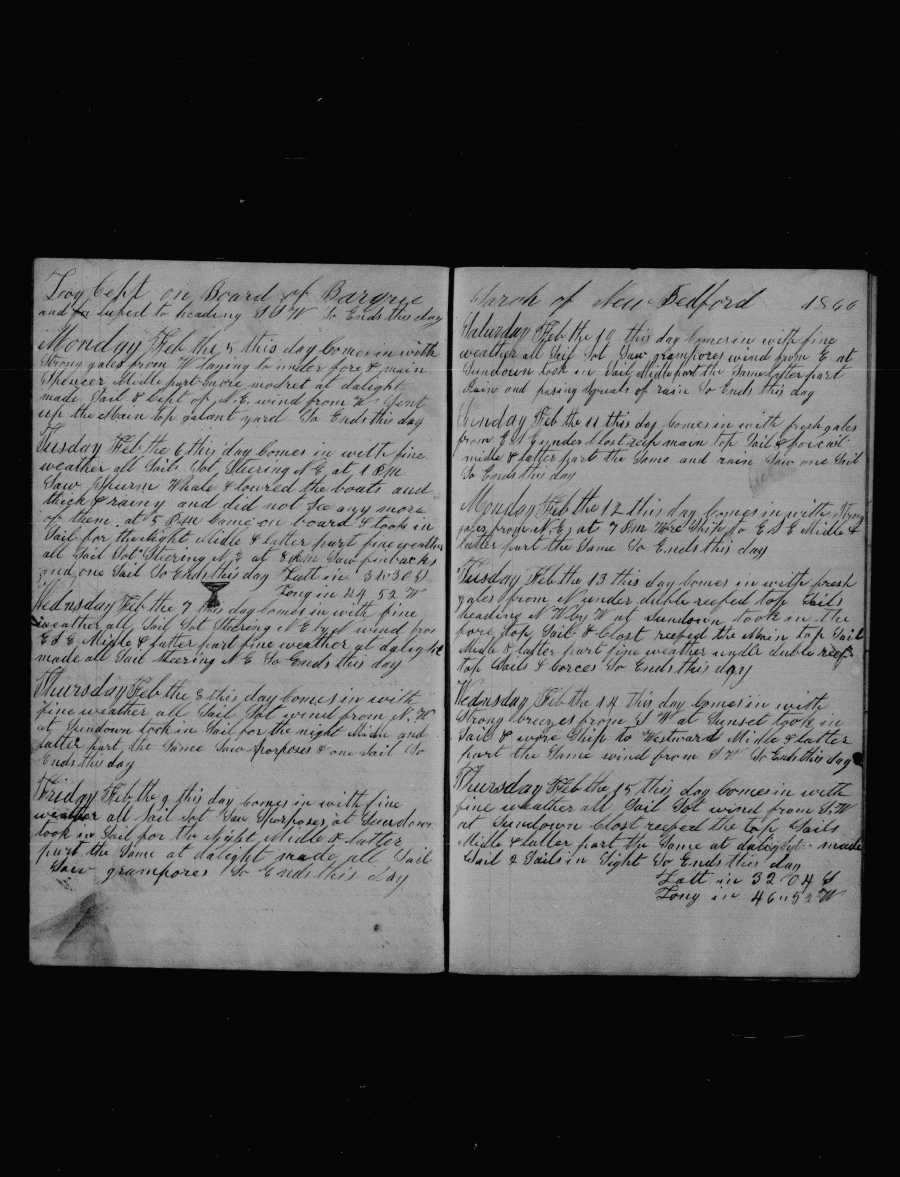 Log Cept on Board of Barque
and luped to heading S S W So Ends this day
Monday Feb the 5 this day Comes in with
Strong gales from W laying to under fore & main
Spencer Midle part more modret at dalight
made Sail & Cept of N.E. wind from W Sent
up the Main top galant yard So Ends this day
Tusday Feb the 6 this day Comes in with fine
weather all Sails Sot Stering N E at 1 P M
Saw Spurm Whale & lowred the boats and
thick & rainy and did not See any more
of them. at 5 P M Came on board & took in
Sail for the Night Midle & latter part fine weather
all Sail Sot Stering N. E at 8 A M Saw finbacks
and one Sail So Ends this day Latt in 34 30 S
Long in 44 52 W
Wednsday Feb the 7 this day Comes in with fine
weather all Sail Sot Stering N E by N wind from
E S E Midle & latter part fine weather at dalight
made all Sail Steering N E So Ends this day
Thursday Feb the 8 this day Comes in with
fine weather all Sail Sot wind from N. W
at Sundown look in Sail for the night Midle and
latter part the Same Saw porposes & one Sail So
Ends this day
Friday Feb the 9 this day Comes in with fine
weather all Sail Sot Saw Sporposes at Sundown
took in Sail for the Night Midle & latter
part the Same at dalight made all Sail
Saw grampores So Ends this day
Clarck of New Bedford 1866
Saturday Feb the 10 this day Comes in with fine
weather all Sail Sot Saw grampores wind from E. at
Sundown took in Sail Midle part the Same latter part
Rain and pasing Squals of rain So Ends this day
Sunday Feb the 11 this day Comes in with fresh gales
from E S E under Clost reep main top Sail & forcail
midle & latter part the Same and rain Saw one Sail
So Ends this day
Monday Feb the 12 this day Comes in with Strong
gales from N. E, at 7 P m Wore Ship to E S E Midle &
latter part the Same So Ends this day
Tusday Feb the 13 this day Comes in with fresh
gales from N under duble reefed top Sails
heading N W by W at Sundown took in the
fore top Sail & Clost reefed the Main top Sail
Midle & latter part fine weather undle duble reef
top Sails & Corces So Ends this day
Wednsday Feb the 14 This day Comes in with
Strong breezes from S W at Sunset took in
Sail & wore Ship to Westward Midle & latter
part the Same wind from S W So Ends this day
Thursday Feb the 15 this day Comes in with
fine weather all Sail Sot wind from S. W
at Sundown Clost reefed the top Sails
Midle & latter part the Same at dalight made
Sail 2 Sails in Sight So Ends this day
Latt in 32 04 S
Long in 46 52 W